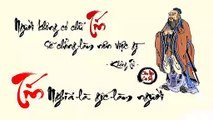 Người không có chữ Tín
Sẽ chẳng làm nên việc gì
Khổng Tử
Tín Nghĩa là gốc làm người